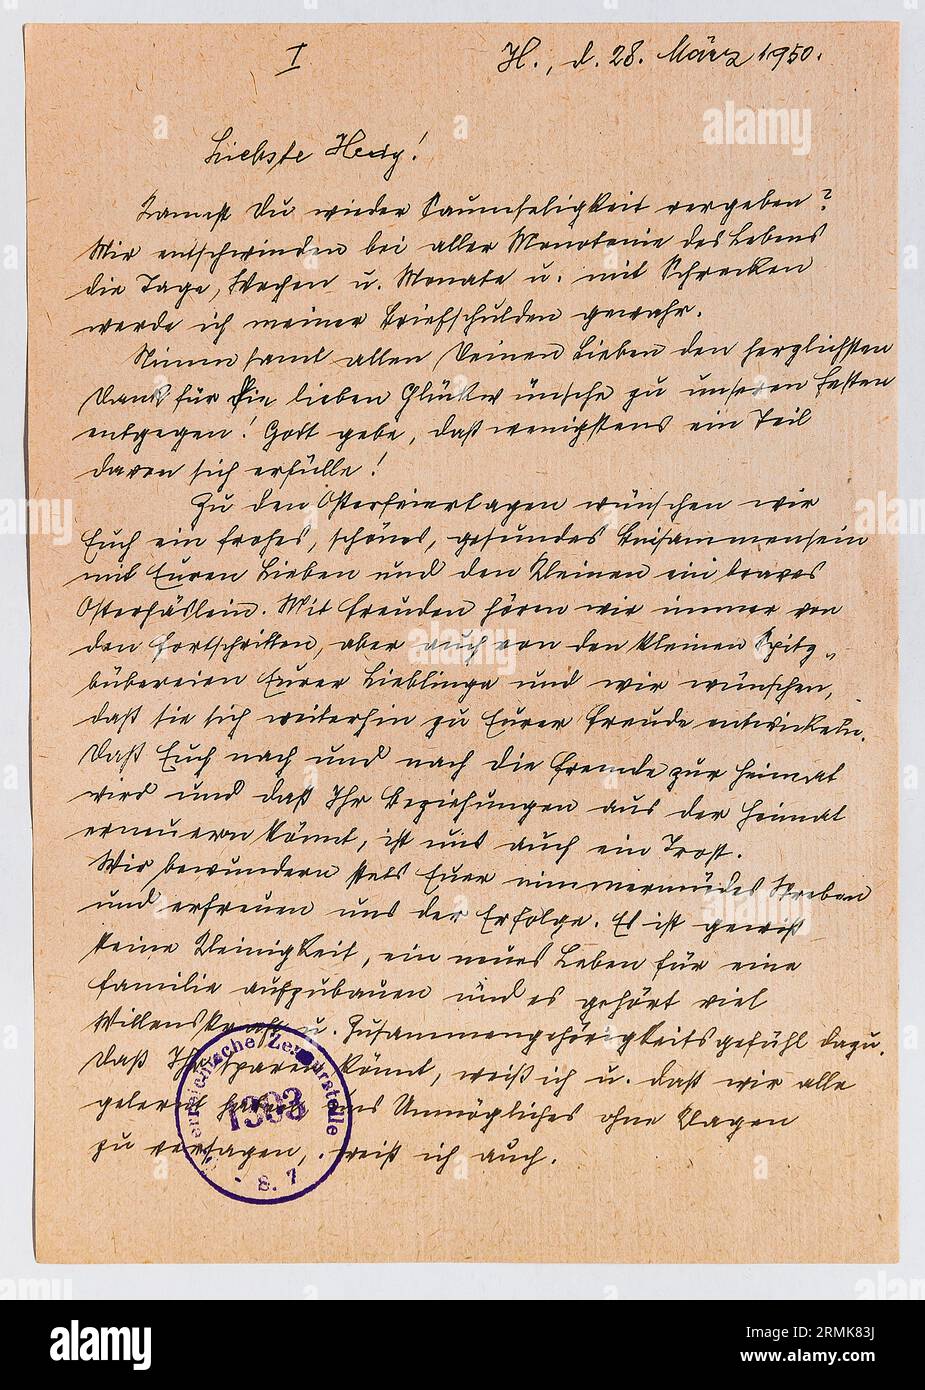 I
H., d. 28. März 1950.
Liebste Hedy!
Kannst Du wieder Saumseligkeit vergeben?
Wir entschwinden bei aller Monotonie des Lebens
die Tage, Wochen u. Monate u. mit Schrecken
werde ich meiner Briefschulden gewahr.
Nimm samt allen Deinen Lieben den herzlichsten
Dank für Die lieben Glückwünsche zu unseren Festen
entgegen! Gott gebe, daß wenigstens ein Teil
davon sich erfülle!
Zu den Osterfeiertagen wünschen wir
Euch ein frohes, schönes, gesundes Beisammensein
mit Euren Lieben und den Kleinen ein braves
Osterhäslein. Mit Freuden hören wir immer von
den Fortschritten, aber auch von den kleinen Spitz„
bübereien Eurer Lieblinge und wir wünschen,
daß sie sich weiterhin zu Eurer Freude entwickeln.
Daß Euch nach und nach die Fremde zur Heimat
wird und daß Ihr Beziehungen aus der Heimat
erneuern könnt, ist uns auch ein Trost.
Wir bewundern stets Euer nimmermüdes Streben
und erfreuen uns der Erfolge. Es ist gewiß
keine Kleinigkeit, ein neues Leben für eine
Familie aufzubauen und es gehört viel
Willenskraft u. Zusammengehörigkeitsgefühl dazu.
Daß Ihr sparen könnt, weiß ich u. daß wir alle
gelernt haben uns Unmögliches ohne Klagen
zu versagen, weiß ich auch.
Österreichische Zensurstelle
1393
· S. 7 ·
alamy
Image ID: 2RMK83J
www.alamy.com